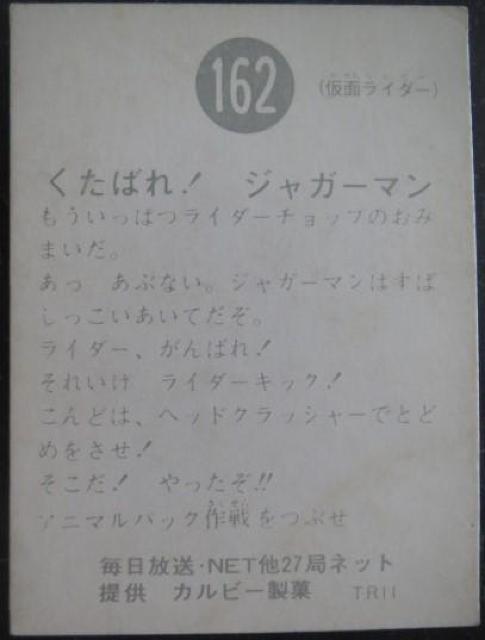 162
(仮面ライダー)
くたばれ! ジャガーマン
もういっぱつライダーチョップのおみ
まいだ。
あっ あぶない。ジャガーマンはすば
しっこいあいてだぞ。
ライダー、がんばれ!
それいけ ライダーキック!
こんどは、ヘッドクラッシャーでとど
めをさせ!
そこだ! やったぞ!!
アニマルパック作戦をつぶせ
毎日放送・NET他27局ネット
提供 カルビー製菓 T.R11